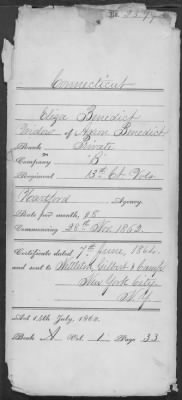 Connecticut
Eliza Benedict
Widow of Benedict
Rank Private
Company "B"
Regiment 13th Ct Vols.
Hartford Agency.
Rate per month, $8
Commencing 28th Nov. 1862.
Certificate dated, 7th June, 1864.
and sent to Gilbert & Camp
New York City
N.Y.
Act 14th July, 1862.
Book A Vol. 1 Page 33